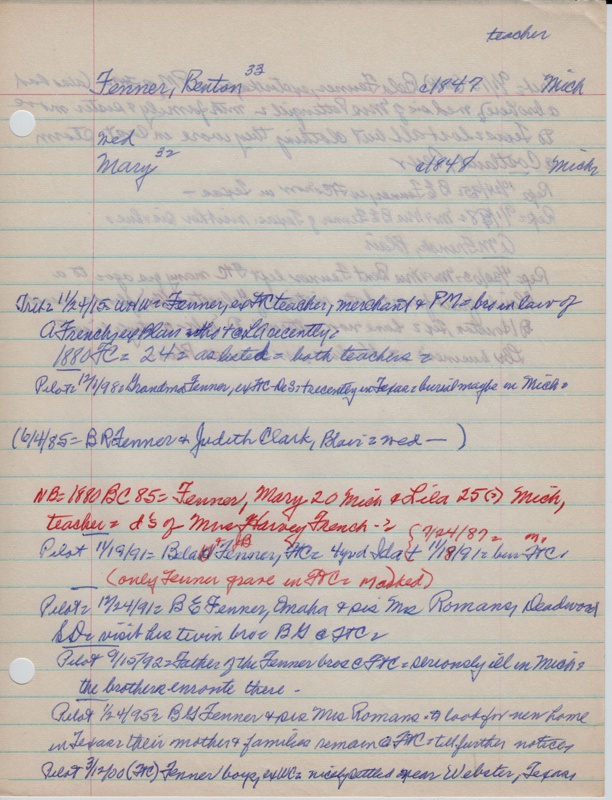 teacher
Fenner, Benton 33 c1847 Mich
wed
Mary 32 c1848 Mich
Trib= 11/24/15= Fenner, ex FC teacher, merchant & PM= bro in law of
A French, ex Blair= recently=
1880 FC= 24= as listed= both teachers=
Pilot= 12/1/98= Grandma Fenner, ex FC- recently in Texas= burial maybe in Mich=
(6/4/85= B R Fenner & Judith Clark, Blair= wed — )
NB= 1880 BC 85= Fenner, Mary 20 Mich & Lila 25(?) Mich,
teacher= d's of Mrs Harvey French-?
Pilot 11/19/91= Fenner, FC= 4 yr d Ida + 11/18/91= bur FC.
(only Fenner grave in FC= marked)
Pilot= 12/24/91= B E Fenner, Omaha & sis Mrs Romans, Deadwood
SD= visit his twin bro= B G @ FC=
Pilot 9/15/92= Father of the Fenner bros @ FC= seriously ill in Mich=
the brothers enroute there -
Pilot 1/24/95= B G Fenner & sis Mrs Romans= look for new home
in Texas= their mother & families remain @ FC= till further notice,
Pilot 3/12/00 (FC) Fenner boys, ex WC= nicely settled near Webster, Texas,